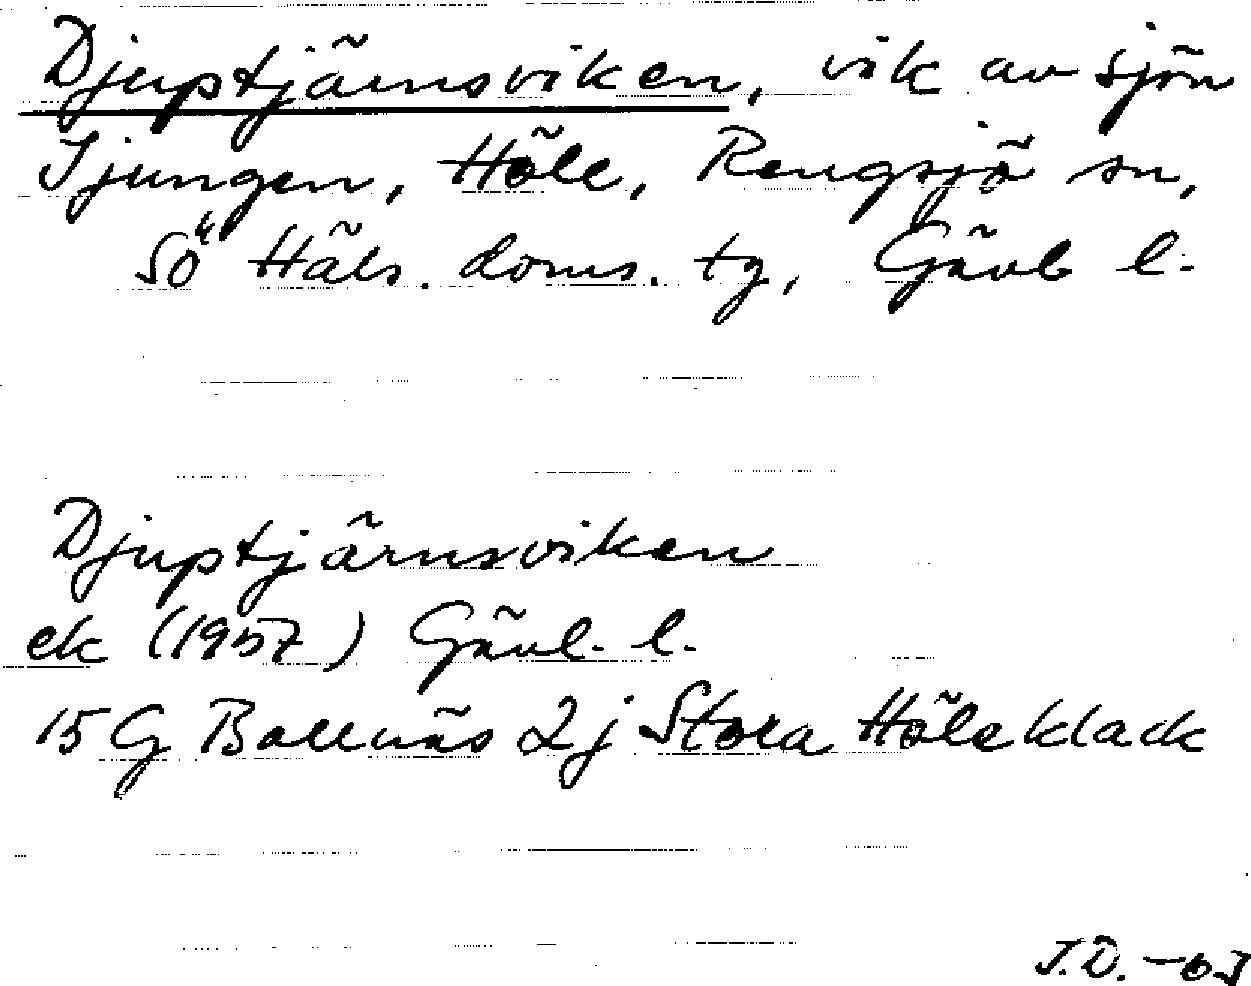 Djuptjärnsviken, vik av sjön
Ijungen, Höle, Rengsjö sn,
Sö Häls. doms. tg, Gävl l.
Djuptjärnsviken
ek (1957) Gävl. l.
15G Bollnäs 2j Stora Höleklack
J.D. -63